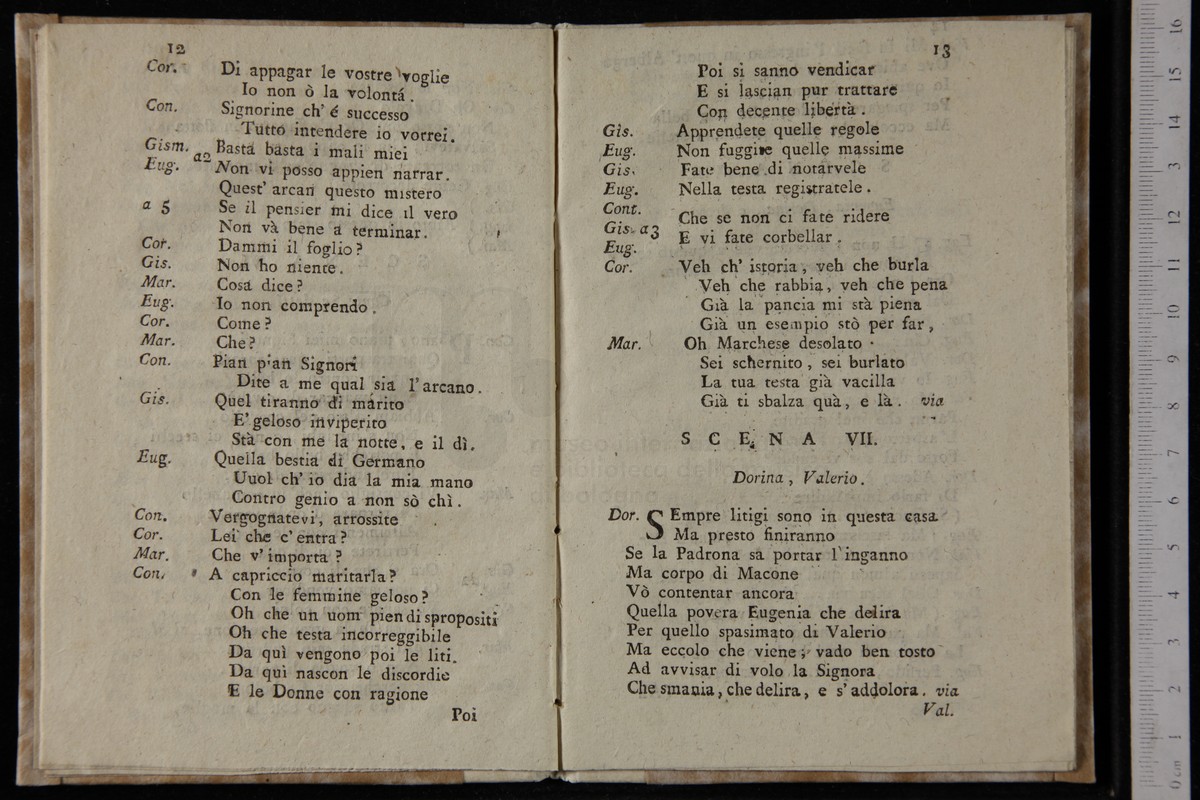 12
Cor. Di appagar le vostre voglie
Io non ò la volontá.
Con. Signorine ch' é successo
Tutto intendere io vorrei.
Gism. a2 Basta basta i mali miei
Eug. Non vi posso appien narrar.
Quest' arcan questo mistero
a 5 Se il pensier mi dice il vero
Non và bene a terminar.
Cor. Dammi il foglio?
Gis. Non ho niente.
Mar. Cosa dice?
Eug. Io non comprendo.
Cor. Come?
Mar. Che?
Con. Pian pian Signori
Dite a me qual sia l'arcano.
Gis. Quel tiranno di marito
E' geloso inviperito
Stà con me la notte, e il dì.
Eug. Quella bestia di Germano
Uuol ch' io dia la mia mano
Contro genio a non sò chì.
Con. Vergognatevi, arrossite
Cor. Lei che c' entra?
Mar. Che v' importa?
Con. A capriccio maritarla?
Con le femmine geloso?
Oh che un uom pien di spropositi
Oh che testa incorreggibile
Da quì vengono poi le liti.
Da quì nascon le discordie
E le Donne con ragione
Poi
13
Poi si sanno vendicar
E si lascian pur trattare
Con decente libertà.
Gis. Apprendete quelle regole
Eug. Non fuggite quelle massime
Gis. Fate bene di notarvele
Eug. Nella testa registratele.
Cont. Che se non ci fate ridere
Gis. a3 E vi fate corbellar.
Eug.
Cor. Veh ch' istoria, veh che burla
Veh che rabbia, veh che pena
Già la pancia mi stà piena
Già un esempio stò per far,
Mar. Oh Marchese desolato
Sei schernito, sei burlato
La tua testa già vacilla
Già ti sbalza quà, e là. via
SCENA VII.
Dorina, Valerio.
Dor. SEmpre litigi sono in questa casa
Ma presto finiranno
Se la Padrona sà portar l'inganno
Ma corpo di Macone
Vò contentar ancora
Quella povera Eugenia che delira
Per quello spasimato di Valerio
Ma eccolo che viene; vado ben tosto
Ad avvisar di volo la Signora
Che smania, che delira, e s' addolora. via
Val.